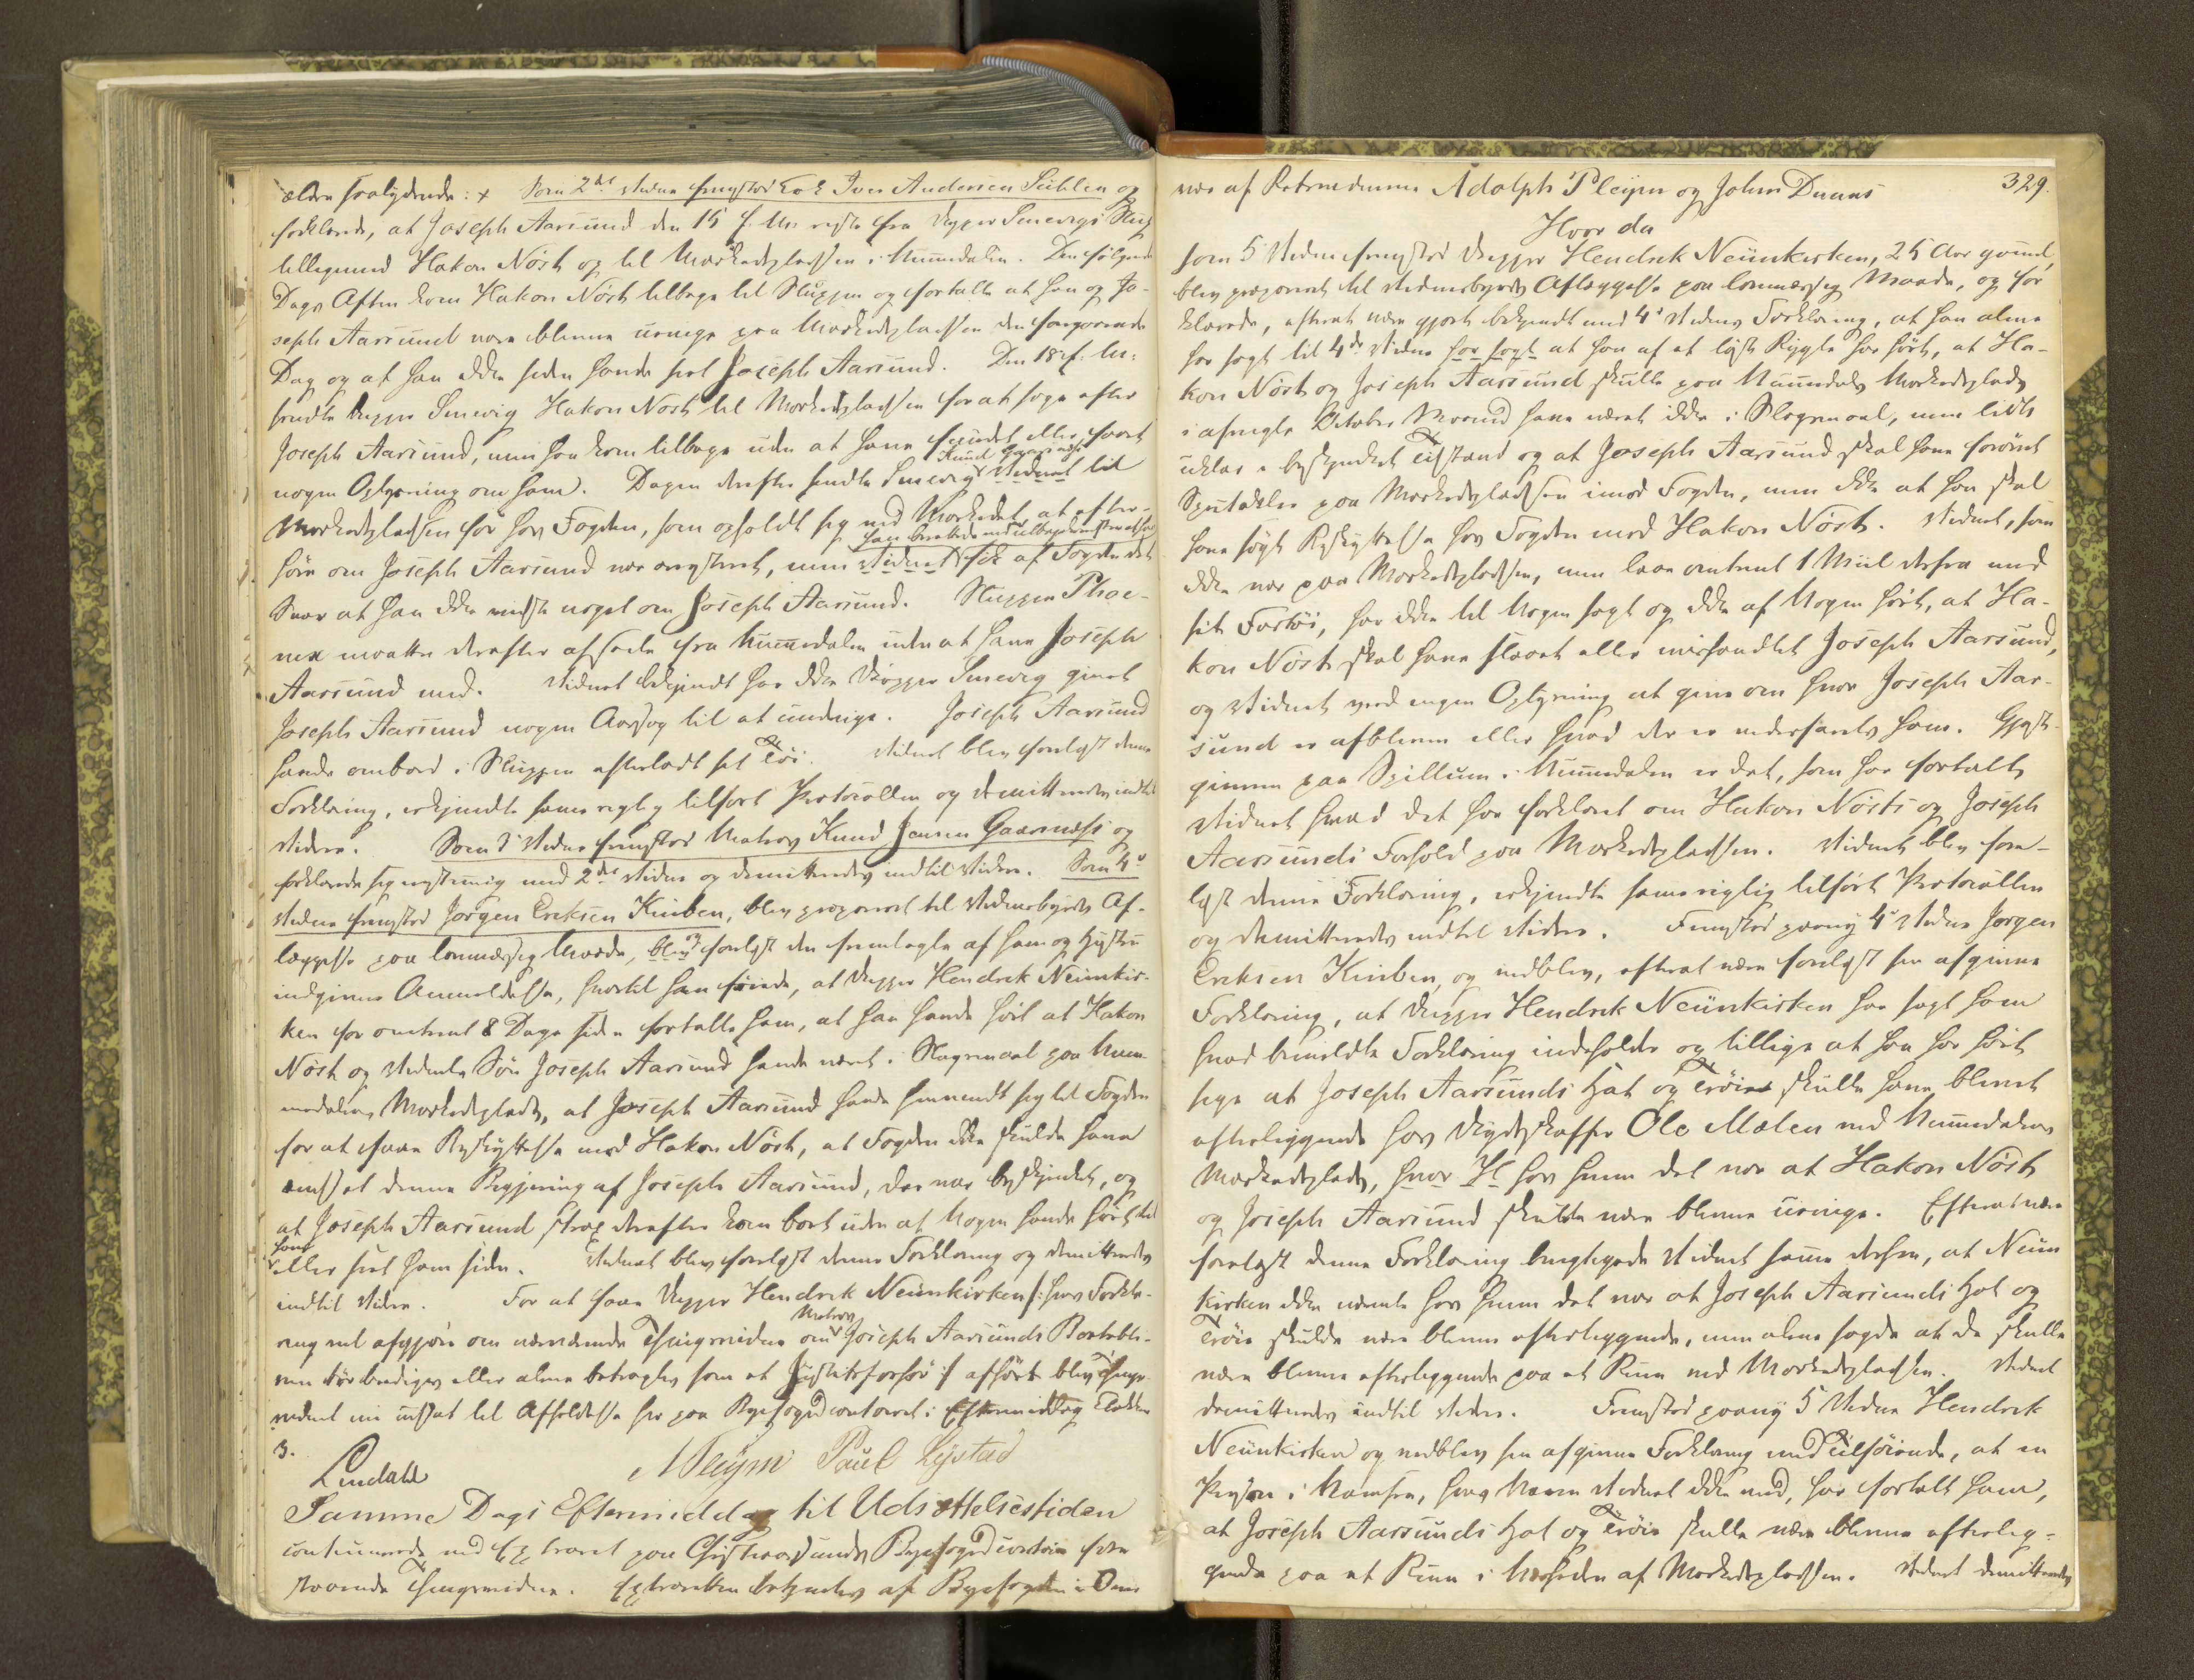 ældre saalydende: x Som 2det Vidne fremstod Iver Andersen Sühlen og
forklarede, at Joseph Aarsund den 15 f. M. reiste fra Skipper Smevigs
tilligemed Hakon Nøst og til Markedspladsen i Numedalen. Den følgende
Dags Aften kom Hakon Nøst tilbage til Sluppen og fortalte at han og Jo-
seph Aarsund vare blevne uenige paa Markedspladsen den foregaaende
Dag og at han ikke siden havde seet Joseph Aarsund. Den 18 f. M.
sendte Skipper Smevig Hakon Nøst til Markedspladsen for at søge efter
Joseph Aarsund, men han kom tilbage uden at have fundet eller faaet
nogen Oplysning om ham. Dagen derefter sendte Smevig Knud Gaarnæss Vidnet til
Markedspladsen for hos Fogden, som opholdt sig ved Markedet, at efter-
høre om Joseph Aarsund var arresteret, men Vidnet fik af Fogden det
Svar at han ikke vidste noget om Joseph Aarsund. Sluppen Phoe-
nix maatte derefter afseile fra Numedalen uden at have Joseph
Aarsund med. Vidnet bekjendt har ikke Skipper Smevig givet
Joseph Aarsund nogen Aarsag til at undvige. Joseph Aarsund
havde ombord i Sluppen efterladt sit Tøi. Vidnet blev forelæst denne
Forklaring, erkjendte samme rigtig tilført Protocollen og demitteredes indtil
videre. Som 3 Vidne fremstod Matros Knud Jensen Gaarnæss og
forklarede sig enstemmig med 2det Vidne og demitteredes indtil videre. Som 4de
Vidne fremstod Jørgen Eriksen Kinben, blev præpareret til Vidnesbyrds Af-
læggelse paa lovmæssig Maade, blev forelæst den fremlagte af ham og Hustru
indgivne Anmeldelse, hvortil han föiede, at Skipper Hendrik Neünkir-
ken for omtrent 8 Dage siden fortalte ham, at han havde hørt at Hakon
Nøst og Vidnets Søn Joseph Aarsund havde været i Slagsmaal paa Num-
medalens Markedsplads, at Joseph Aarsund havde henvendt sig til Fogden
for at faae Beskyttelse mod Hakon Nøst, at Fogden ikke skulde have
ændset denne Begjering af Joseph Aarsund, der var beskjenket, og
at Joseph Aarsund strax derefter kom bort uden at Nogen havde hørt til ham
eller seet ham siden. Vidnet blev forelæst denne Forklaring og demitteredes
indtil videre. For at faae Skipper Hendrik Neünkirken /: hvis Forkla-
ring vil afgjøre om nærværende Thingsvidne om Matros Joseph Aarsunds Bortebli-
ven bør beediges eller alene betragtes som et Justitsforhør :/ afhørt blev Things-
vidnet nu udsat til Afholdelse her paa Byefogedcontoiret i Eftermiddag Klokken
3.
Lindahl Pleÿm Paul Lÿstad
Samme Dags Eftermiddag til Udsættelsestiden
continuerede ved Extraret paa Christiansunds Byefogedcontoir fore-
staaende Thingsvidne. Extraretten betjentes af Byefogden i Over-
329.
vær af Retsvidnerne Adolph Pleÿm og Johan Duaas
Hvor da
som 5 Vidne fremstod Skipper Hendrik Neünkirken, 25 Aar gammel,
blev præpareret til Vidnesbyrds Aflæggelse paa lovmæssig Maade, og for-
klarede, efterat være gjort bekjendt med 4de Vidnes Forklaring, at han alene
har sagt til 4de Vidne har sagt at han af et løst Rygte har hørt, at Ha-
kon Nøst og Joseph Aarsund skulle paa Numedals Markedsplads
i afvigte October Maaned have været ikke i Slagsmaal, men lidt
uklar i beskjenket Tilstand og at Joseph Aarsund skal have forøvet
Spektakler paa Markedspladsen imod Fogden, men ikke at han skal
have søgt Beskyttelse hos Fogden mod Hakon Nøst. Vidnet, som
ikke var paa Markedspladsen, men laae omtrent 1 Miil derfra med
sit Fartøi, har ikke til Nogen sagt og ikke af Nogen hørt, at Ha-
kon Nøst skal have slaaet eller mishandlet Joseph Aarsund,
og Vidnet veed ingen Oplysning at give om hvor Joseph Aar-
sund er afbleven eller hvad der er vederfaret ham. Gjæst-
giveren paa Spillum i Numedalen er det, som har fortalt
Vidnet hvad det har forklaret om Hakon Nøsts og Joseph
Aarsunds Forhold paa Markedspladsen. Vidnet blev fore-
læst denne Forklaring, erkjendte samme rigtig tilført Protocollen
og demitteredes indtil videre. Fremstod paany 4de Vidne Jørgen
Eriksen Kinben, og vedblev, efterat være forelæst sin afgivne
Forklaring, at Skipper Hendrik Neünkirken har sagt ham
hvad bemeldte Forklaring indeholder og tillige at han har hørt
sige at Joseph Aarsunds Hat og Trøie skulle have blevet
efterliggende hos Skydsskaffer Ole Mælen ved Numedalens
Markedsplads, hvor H hos hvem det var at Hakon Nøst
og Joseph Aarsund skulde være blevne uenige. Efterat være
forelæst denne Forklaring berigtigede Vidnet samme derhen, at Neün-
kirken ikke nævnte hos hvem det var at Joseph Aarsunds Hat og
Trøie skulde være blevne efterliggende, men alene sagde at de skulle
være blevne efterliggende paa et Ruun ved Markedspladsen. Vidnet
demitteredes indtil videre. Fremstod paany 5 Vidne Hendrik
Neünkirken og vedblev sin afgivne Forklaring med Tilføiende, at en
Person i Namsen, hvis Navn Vidnet ikke veed, har fortalt ham,
at Joseph Aarsunds Hat og Trøie skulle være blevne efterlig-
gende paa et Ruun i Nærheden af Markedspladsen. Vidnet demitteredes